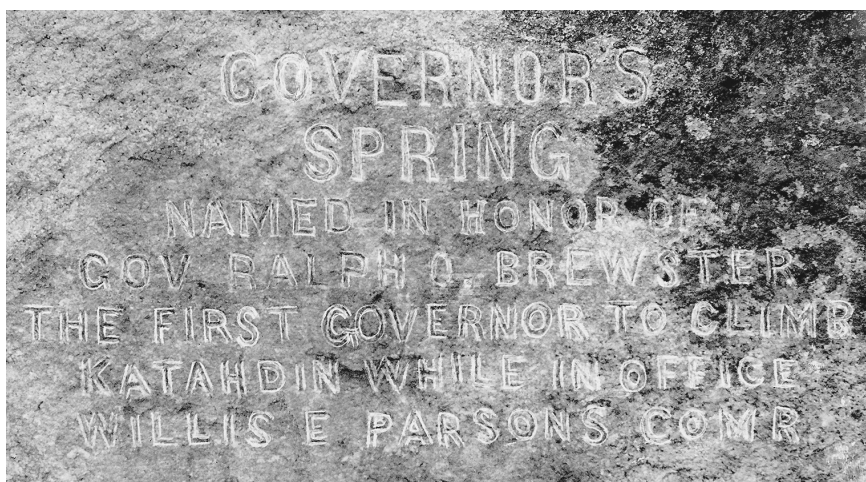 GOVERNOR'S
SPRING
NAMED IN HONOR OF
GOV RALPH O. BREWSTER
THE FIRST GOVERNOR TO CLIMB
KATAHDIN WHILE IN OFFICE
WILLIS E PARSONS COMR